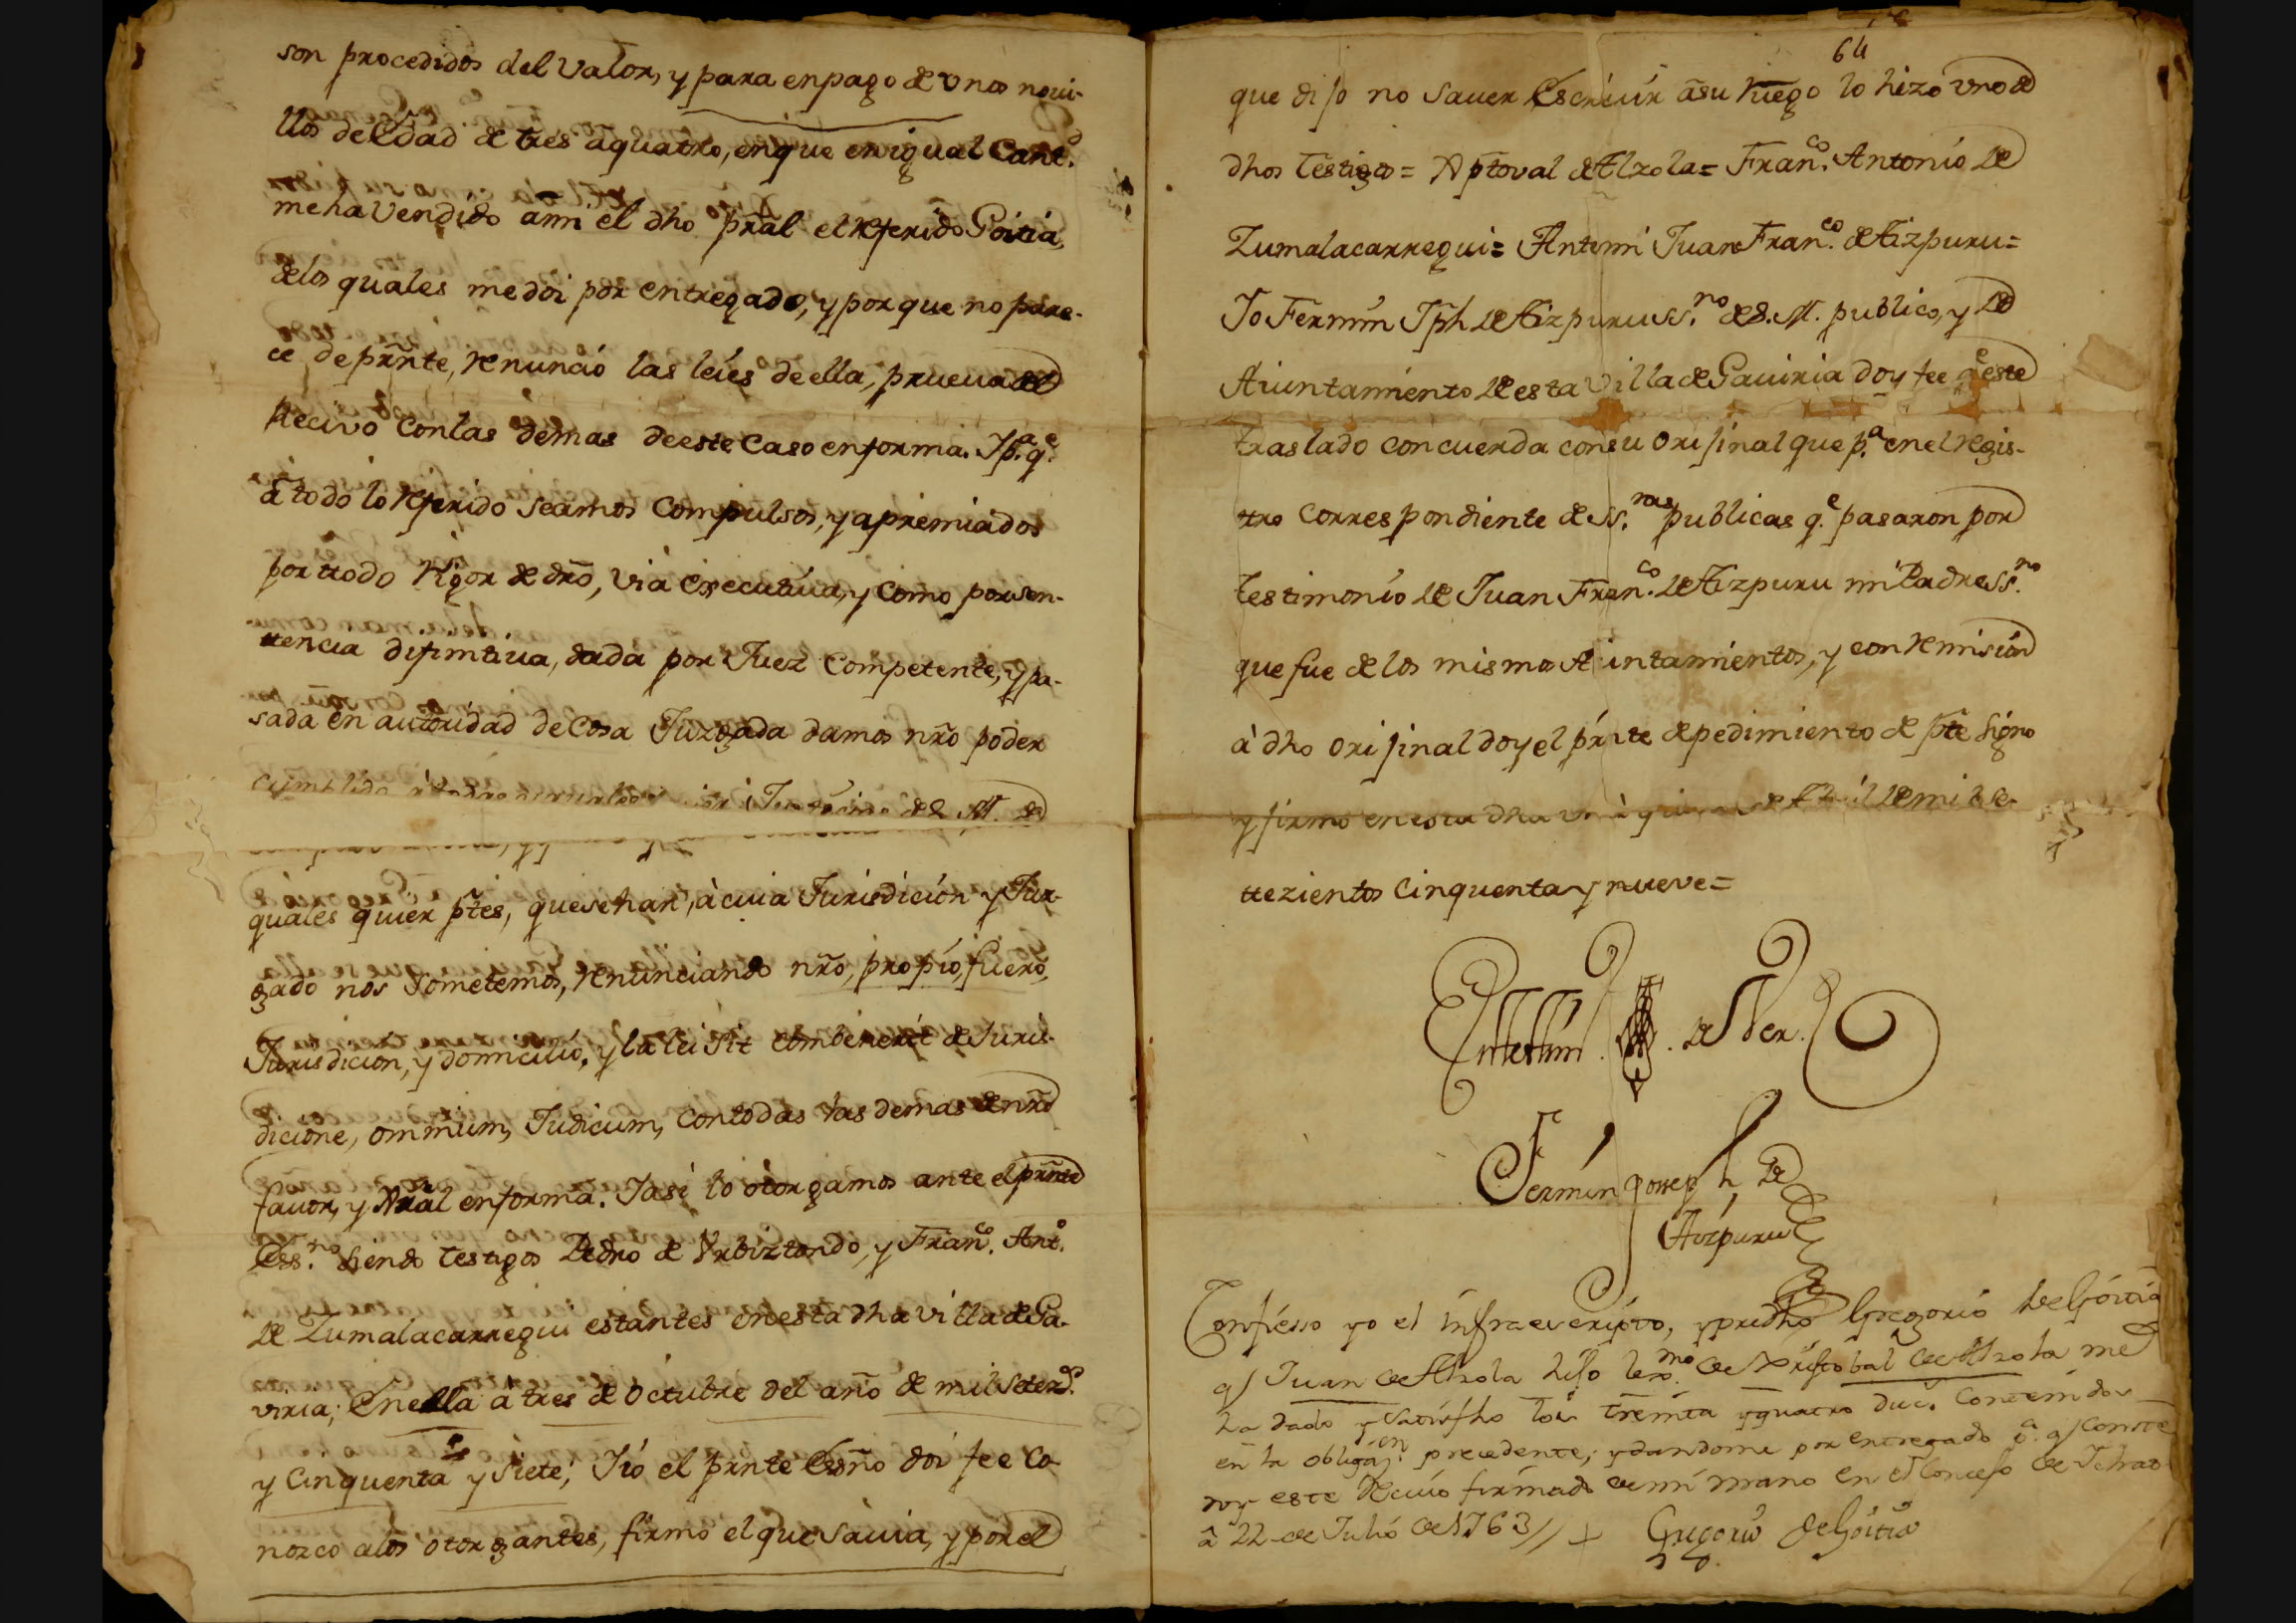 son procedidos del valor, y para enpago de vnos novi-
llos de Edad de tres aquatro, enque en igual Cant.d
me ha Vendido ami el dho prãl el referido Goitia,
delos quales me doi por entregado, y por que no pare-
ce de prñte, renuncio las leies de ella, prueva del
Recivo con las demas de este Caso en forma. I p.a q.e
a todo lo referido seamos Compulsos, y apremiados
por ttodo Rigor de drõ, via executiva, y como por sen-
ttencia difinitiva, dada por Juez Competente, y pa-
sada en autoridad de Cosa Juzgada damos nrõ poder
Cumplido a todos
quales quier ptes, que se han, à cuia Jurisdición y Juz-
gado nos Sometemos, renunciando nrõ, propio, fuero,
Jurisdicion, y domicilio, y la lei Sit combenerit de Juris-
dicione, ommium, Judicum, con todas las demas de nrõ
favor, y Grãl en forma. I asi lo otorgamos ante el prñte
Ess.no siendo testigos Pedro de Vrbiztondo, y Fran.co Ant.o
de Zumalacarregui estantes en esta dha villa de Ga-
viria; En ella a tres de Octubre del año de mil setez.s
y Cinquenta y Siete; I io el prnte Essño doi fee co-
nozco alos otorgantes, firmó el que savia, y por el
64
que dijo no saver Escrivir a su ruego lo hizo vno de
dhos testigos = Xptoval de Alzola = Fran.co Antonio de
Zumalacarregui = Antemi Juan Fran.co de Aizpuru =
Io Fermin Jph de Aizpuru ss.no de S. M. publico, y de
Aiuntamiento de esta Villa de Gaviria doy fee q.e este
traslado concuerda con su Orijinal que p.a en el regis-
tro Correspondiente de ss.ras publicas q.e pasaron por
testimonio de Juan Fran.co de Aizpuru mi Padre ss.no
que fue de los mismos Aiuntamientos, y con remisión
à dho orijinal doy el prnte de pedimiento de pte signo
y firmo en esta dha de mil se-
ttezientos Cinquenta y nueve =
En testim.o de Ver.
Fermin Joseph de
Aizpuru
Confiesso yo el infraescripto, y pre dho Gregorio de Goitia
q Juan de Alzola hijo lexmo de Xpistobal de Alzola me
ha dado y satisfho los treinta y quatro duc.s contenidos
en la obligaz.on precedente; y dandome por entregado p.a q conste
doy este Recivo firmado de mi mano en el Concejo de Ichaso
a 22 de Julio de 1763 // + Gregorio de Goitia